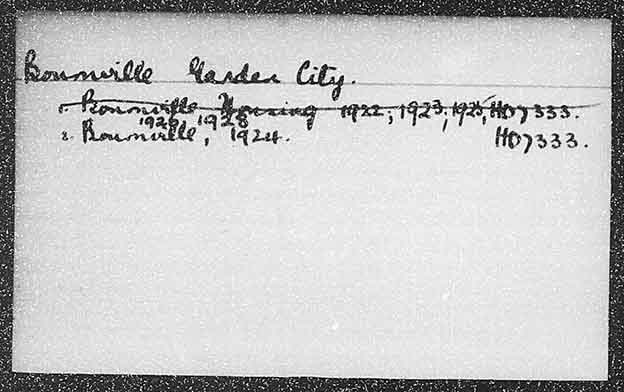 Bournville Garden City.
1. Bournville Housing 1922; 1923; 1925, HD7333.
1926, 1928
2. Bournville, 1924. HD7333.